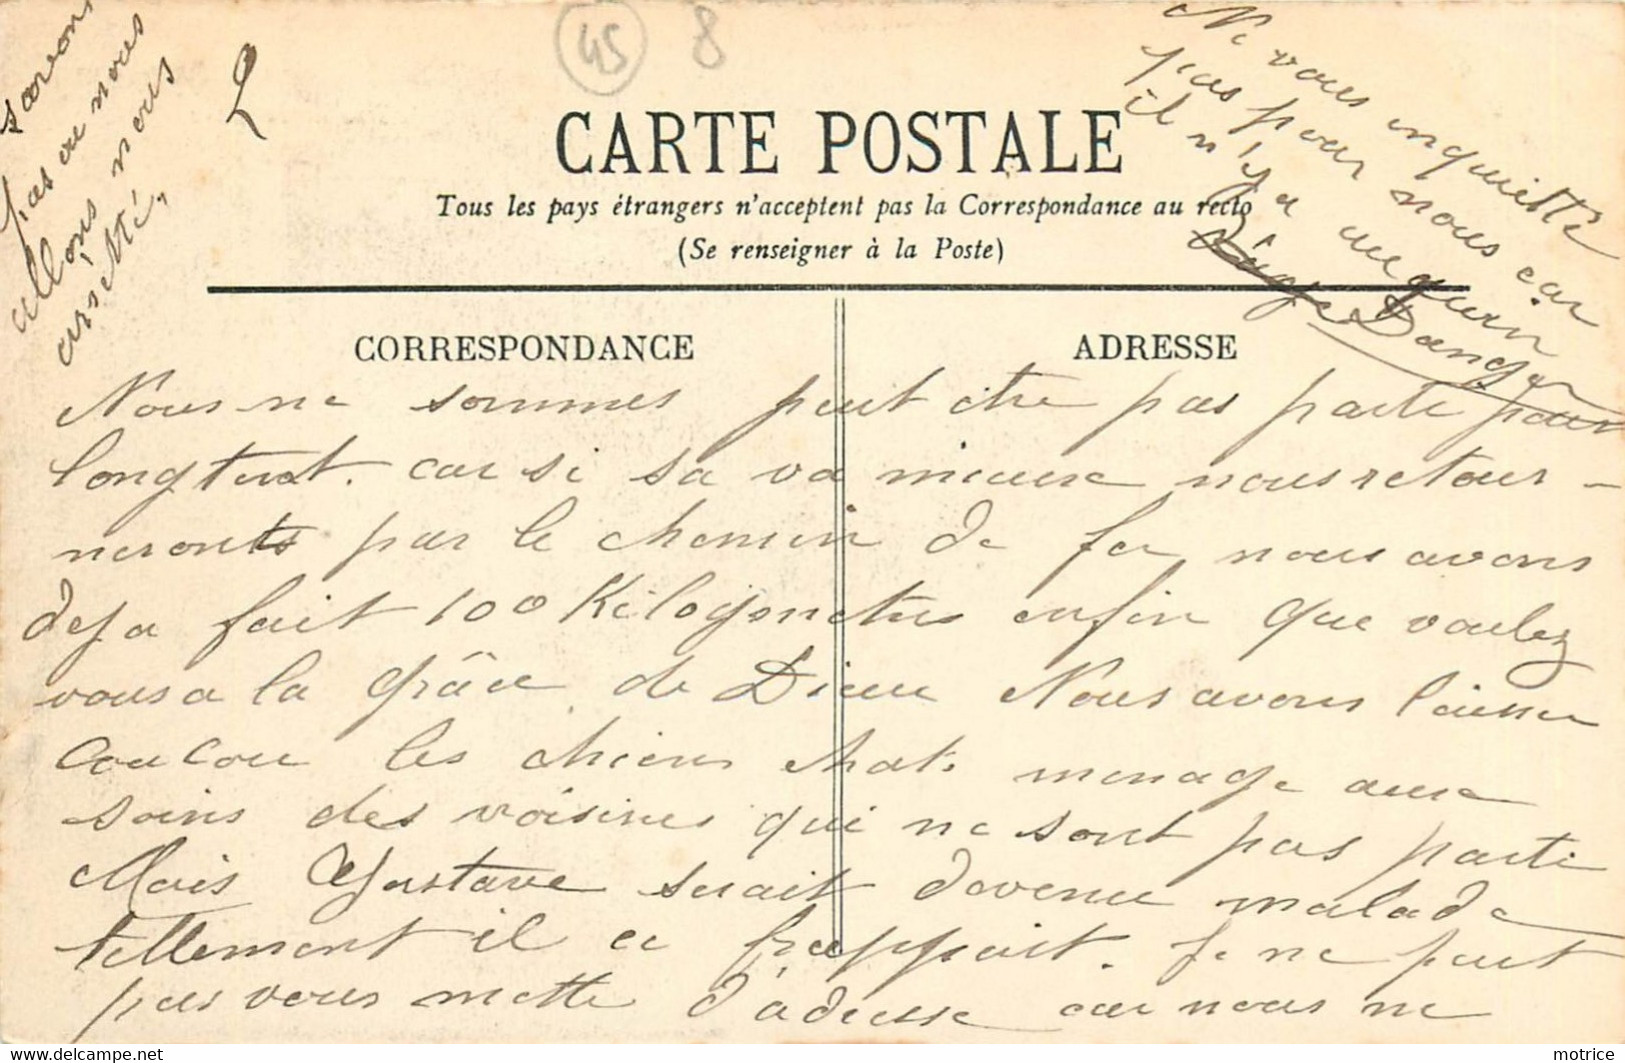 45
8
CARTE POSTALE
Tous les pays étrangers n'acceptent pas la Correspondance au recto
(Se renseigner à la Poste)
CORRESPONDANCE
ADRESSE
Nous ne sommes peut etre pas parte pour
longtent. car si sa va mieux nous retour-
neronts par le chemin de fer nous avons
deja fait 100 Kilogmetres enfin que voulez
vous a la grâce de Dieu Nous avons laisser
Coucou les chiens chats menage aux
soins des voisines qui ne sont pas parti
Mais Gustave serait devenu malade
tellement il ce frappait. Je ne peut
pas vous mettre d'adresse car nous ne
savons
pas ou nous
allons nous
arretté,
Ne vous inquietté
pas pour nous car
il n'y a aucun
Danger
motrice